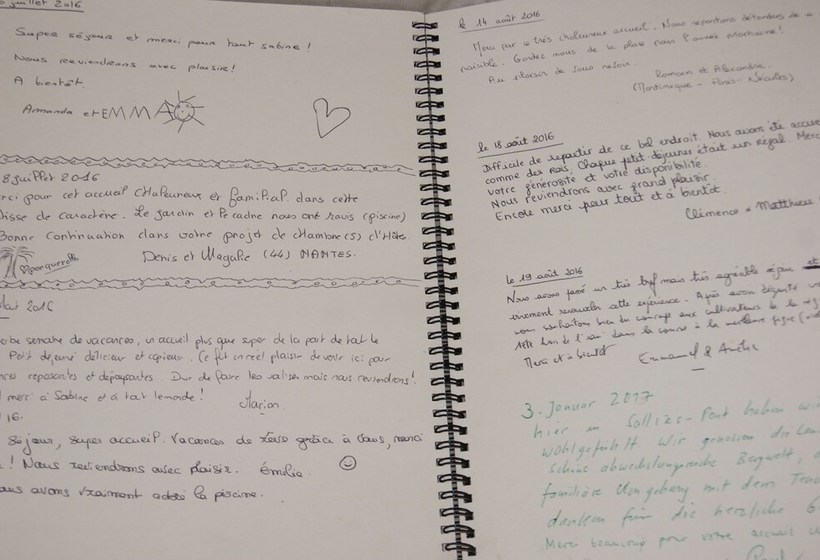 juillet 2016
Super séjour et merci pour tout Sabine !
Nous reviendrons avec plaisir !
A bientôt.
Amanda et EMMA
8 juillet 2016
rci pour cet accueil chaleureux et familial dans cette
tisse de caractère. Le jardin et le cadre nous ont ravis (piscine)
Bonne continuation dans votre projet de chambre(s) d'Hôte.
Porquerolles
Denis et Magalie (44) NANTES.
2016
semaine de vacances, un accueil plus que super de la part de tout le
Petit dejeuné délicieux et copieux. Ce fut un réel plaisir de venir ici pour
reposantes et dépaysantes. Dur de faire les valises mais nous reviendrons !
merci à Sabine et à tout lemonde !
Marion
16.
Séjour, super accueil. Vacances de rêve grâce à vous, merci
! Nous reviendrons avec plaisir. Émilie
ous avons vraiment adoré la piscine.
le 14 août 2016
Merci pour ce très chaleureux accueil. Nous repartons détendus de
paisible. Gardez nous de la place pour l'année prochaine !
Au plaisir de vous revoir.
Romain et Alexandra
(Martinique - Paris -
le 18 août 2016
Difficile de repartir de ce bel endroit. Nous avons été accue
comme des Rois. Chaque petit-déjeuner était un régal. Merc
votre générosité et votre disponibilité.
Nous reviendrons avec grand plaisir.
Encore merci pour tout et à bientôt.
Clémence & Matthieu
le 19 août 2016
Nous avons passé un très bref mais très agréable séjour et
renouveler cette expérience. Après avoir dégusté
vous souhaitons bien du courage aux cultivateurs de la
dans la course à la meilleure figue
Merci et à bientôt
Emmanuel &
3. Januar 2017
hier in Solliès-Pont haben wir
wohlgefühlt. Wir genossen die
schöne abwechslungsreiche Bergwelt,
familiäre Umgebung mit dem
danken für die herzliche G
Merci beaucoup pour votre accueil
Paul